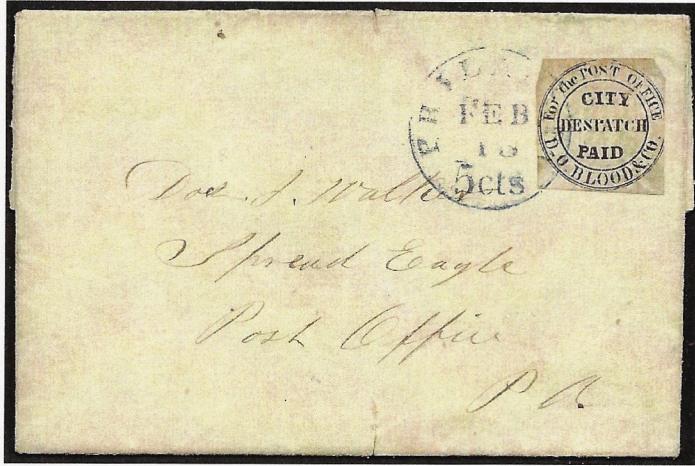 PHILA
FEB
18
5cts
For the POST OFFICE
CITY
DESPATCH
PAID
D.O. BLOOD & CO.
J. Walker
Spread Eagle
Post Office
PA